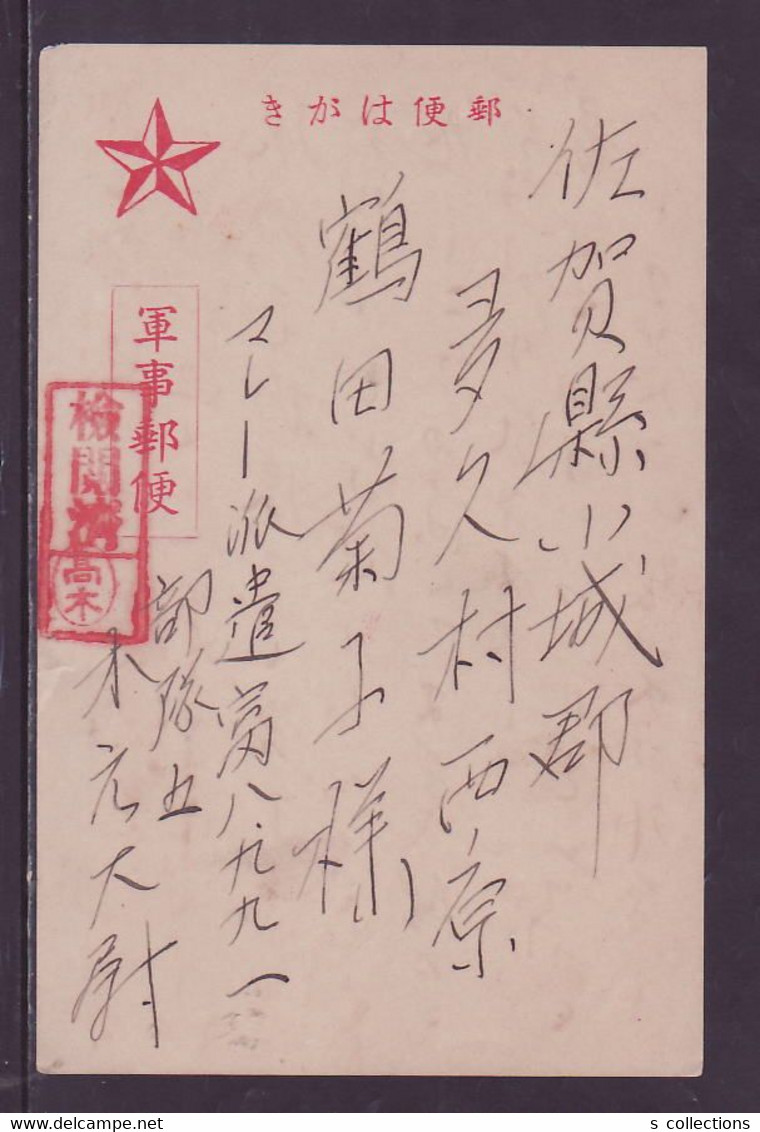 郵便はがき
佐賀縣小城郡
多久村西ノ原
鶴田菊子様
軍事郵便
検閲済
高木
マレー派遣富八九九一
部隊
木元大尉
s collections